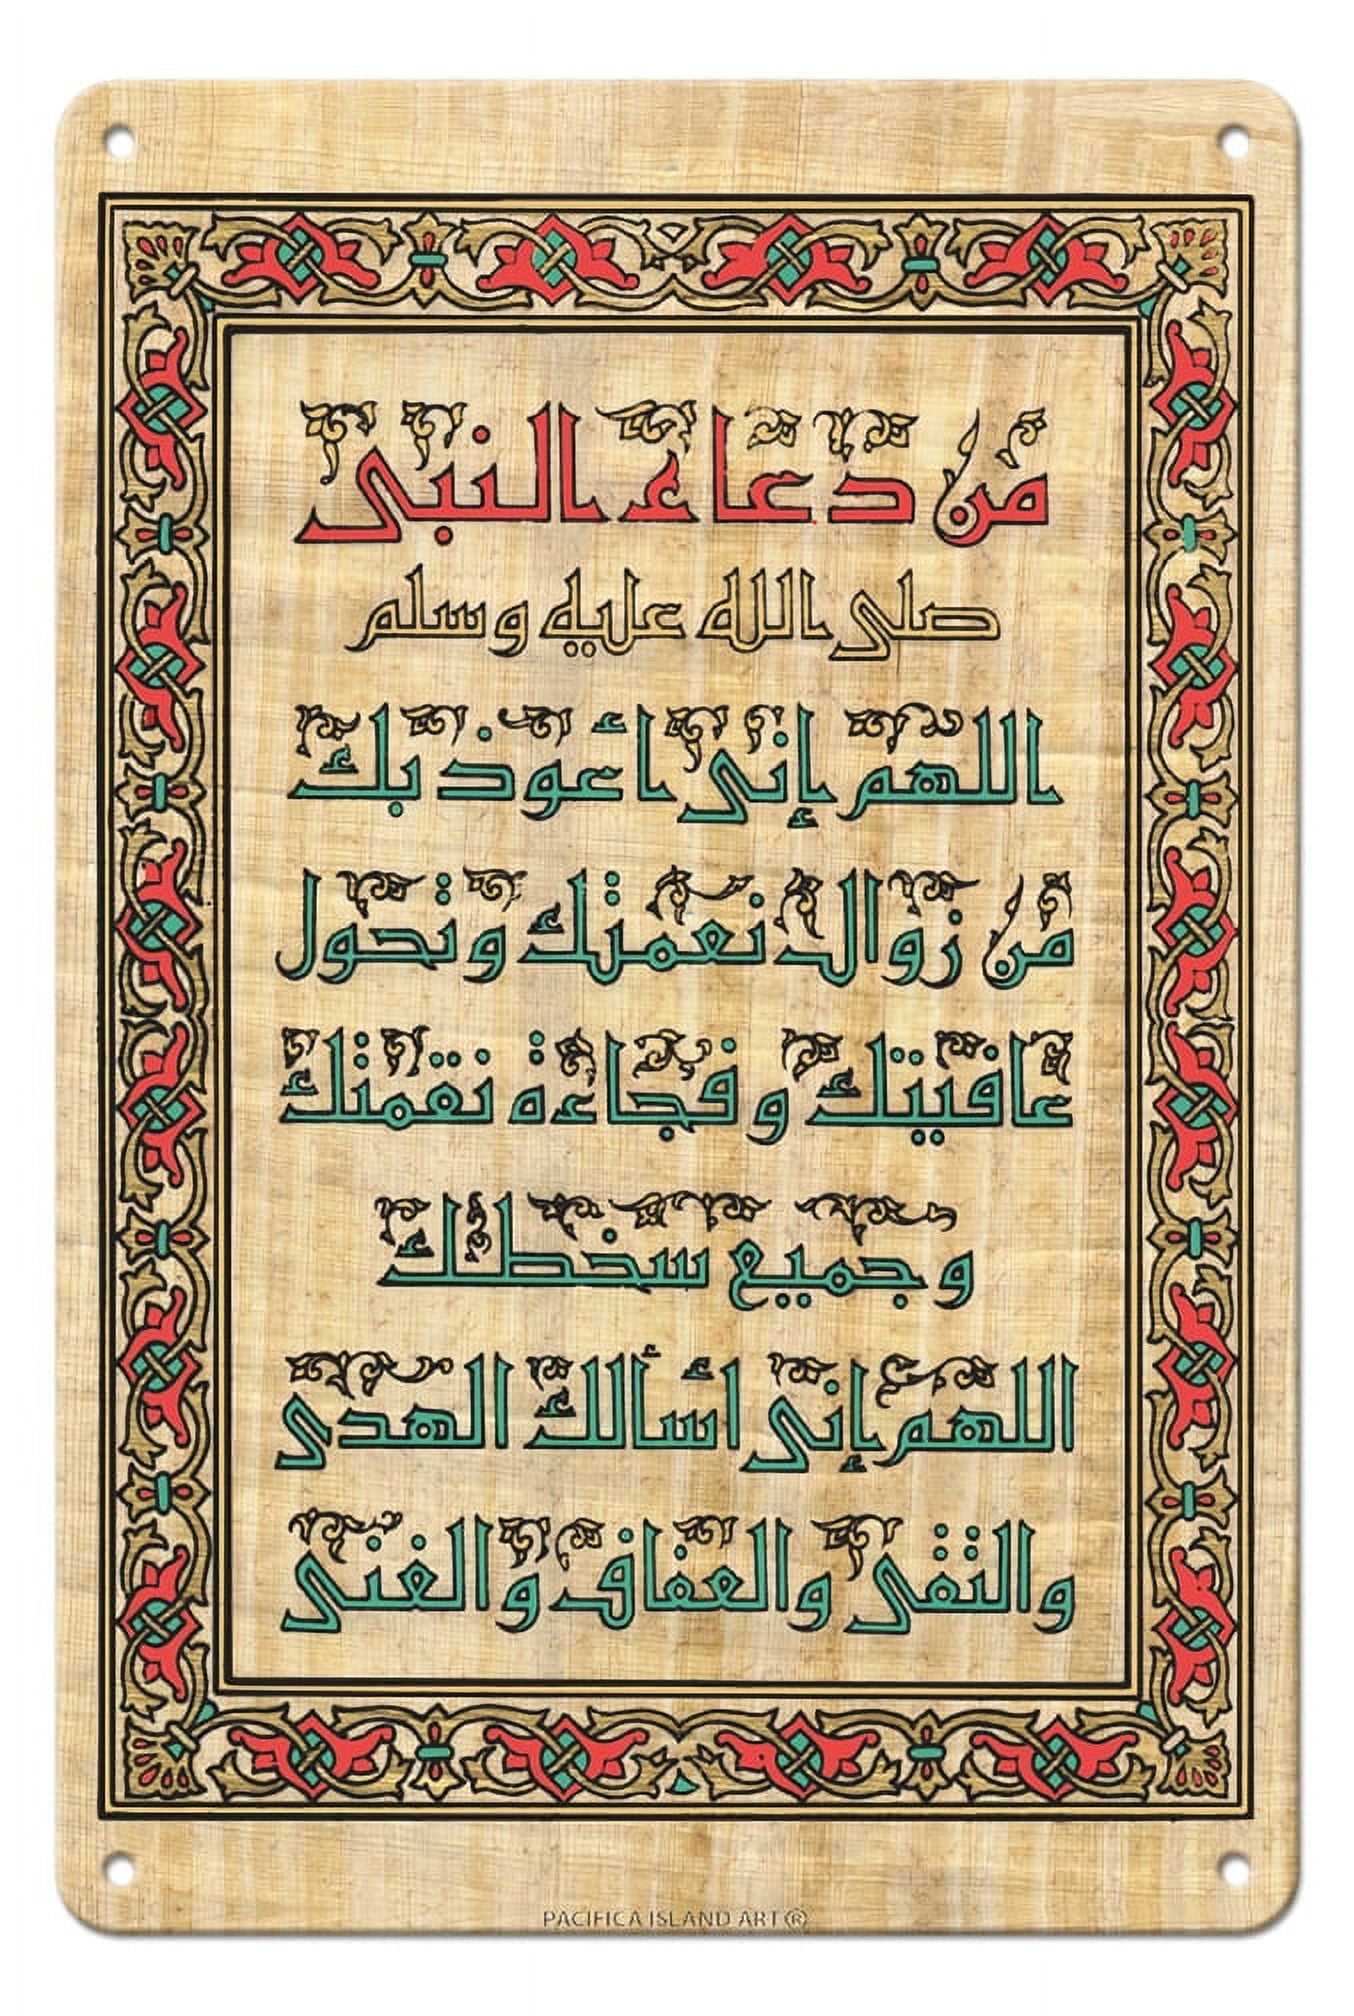 من دعاء النبى
صلى الله عليه وسلم
اللهم إنى أعوذ بك
من زوال نعمتك وتحول
عافيتك وفجاءة نقمتك
وجميع سخطك
اللهم إنى اسألك الهدى
والتقى والعفاف والغنى
PACIFICA ISLAND ART®